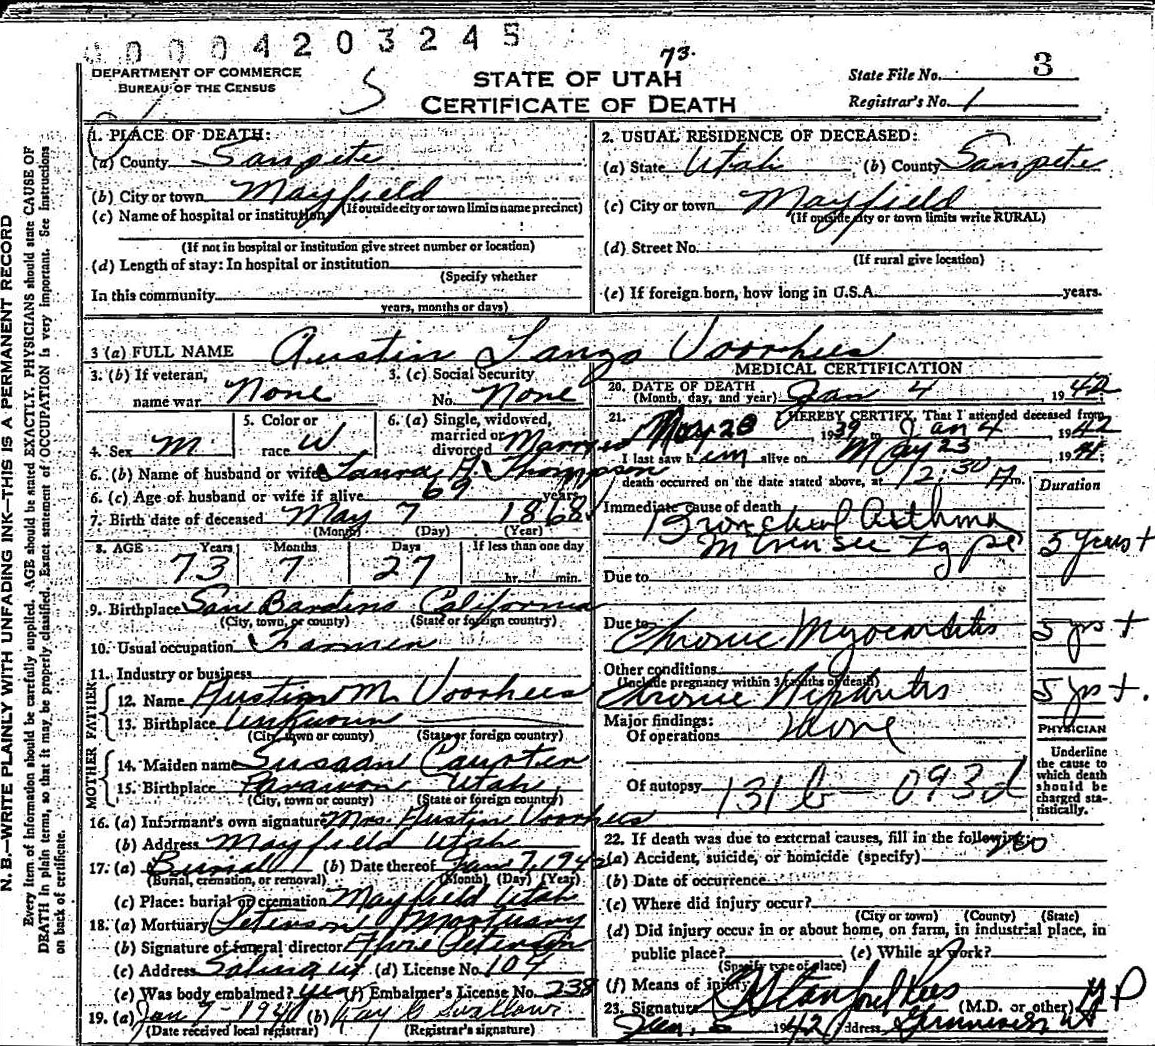 00004203245
73.
DEPARTMENT OF COMMERCE
BUREAU OF THE CENSUS
S
STATE OF UTAH
CERTIFICATE OF DEATH
State File No. 3
Registrar's No. 1
1. PLACE OF DEATH:
(a) County Sanpete
(b) City or town Mayfield
(If outside city or town limits name precinct)
(c) Name of hospital or institution
(If not in hospital or institution give street number or location)
(d) Length of stay: In hospital or institution
(Specify whether
In this community
years, months or days)
2. USUAL RESIDENCE OF DECEASED:
(a) State Utah (b) County Sanpete
(c) City or town Mayfield
(If outside city or town limits write RURAL)
(d) Street No.
(If rural give location)
(e) If foreign born, how long in U.S.A. years.
3 (a) FULL NAME Austin Voorhees
3. (b) If veteran,
name war None
3. (c) Social Security
No. None
4. Sex M.
5. Color or
race W
6. (a) Single, widowed,
married or
divorced Married
6. (b) Name of husband or wife Laura A. Thompson
6. (c) Age of husband or wife if alive 69 years
7. Birth date of deceased May 7 1868
(Month) (Day) (Year)
8. AGE Years Months Days If less than one day
73 7 27 hr. min.
9. Birthplace San Bardino California
(City, town, or county) (State or foreign country)
10. Usual occupation Farmer
11. Industry or business
FATHER
12. Name Austin M. Voorhees
13. Birthplace Unknown
(City, town or county) (State or foreign country)
MOTHER
14. Maiden name Susaan
15. Birthplace Parawon Utah
(City, town or county) (State or foreign country)
16. (a) Informant's own signature Mrs. Austin Voorhees
(b) Address Mayfield Utah
17. (a) Burial (b) Date thereof Jan 7, 1942
(Burial, cremation, or removal) (Month) (Day) (Year)
(c) Place: burial or cremation Mayfield Utah
18. (a) Mortuary Peterson Mortuary
(b) Signature of funeral director Peterson
(c) Address Salina Ut. (d) License No. 104
(e) Was body embalmed? yes (f) Embalmer's License No. 238
19. (a) Jan 7 - 194 (b) Fay C Swallow
(Date received local registrar) (Registrar's signature)
MEDICAL CERTIFICATION
20. DATE OF DEATH Jan 4 1942
(Month, day, and year)
21. I HEREBY CERTIFY, That I attended deceased from
Nov 20 1939 to Jan 4, 1942
I last saw him alive on May 23 194
death occurred on the date stated above, at 12:30 A m.
Duration
Immediate cause of death
Bronchial Asthma
Type 5 years +
Due to
Due to
Chronic Myocarditis 5 yrs +
Other conditions
(Include pregnancy within 3 months of death)
Chronic Nephritis 5 yrs +.
Major findings:
Of operations None
Of autopsy 131 b - 093d
PHYSICIAN
Underline
the cause to
which death
should be
charged sta-
tistically.
22. If death was due to external causes, fill in the following:
(a) Accident, suicide, or homicide (specify)
(b) Date of occurrence
(c) Where did injury occur?
(City or town) (County) (State)
(d) Did injury occur in or about home, on farm, in industrial place, in
public place? (e) While at work?
(Specify type of place)
(f) Means of injury
23. Signature Stanford Rees (M.D. or other) M D
Jan. 1942 Address Gunnison Ut
N. B.—WRITE PLAINLY WITH UNFADING INK—THIS IS A PERMANENT RECORD
Every item of information should be carefully supplied. AGE should be stated EXACTLY. PHYSICIANS should state CAUSE OF
DEATH in plain terms, so that it may be properly classified. Exact statement of OCCUPATION is very important. See instructions
on back of certificate.